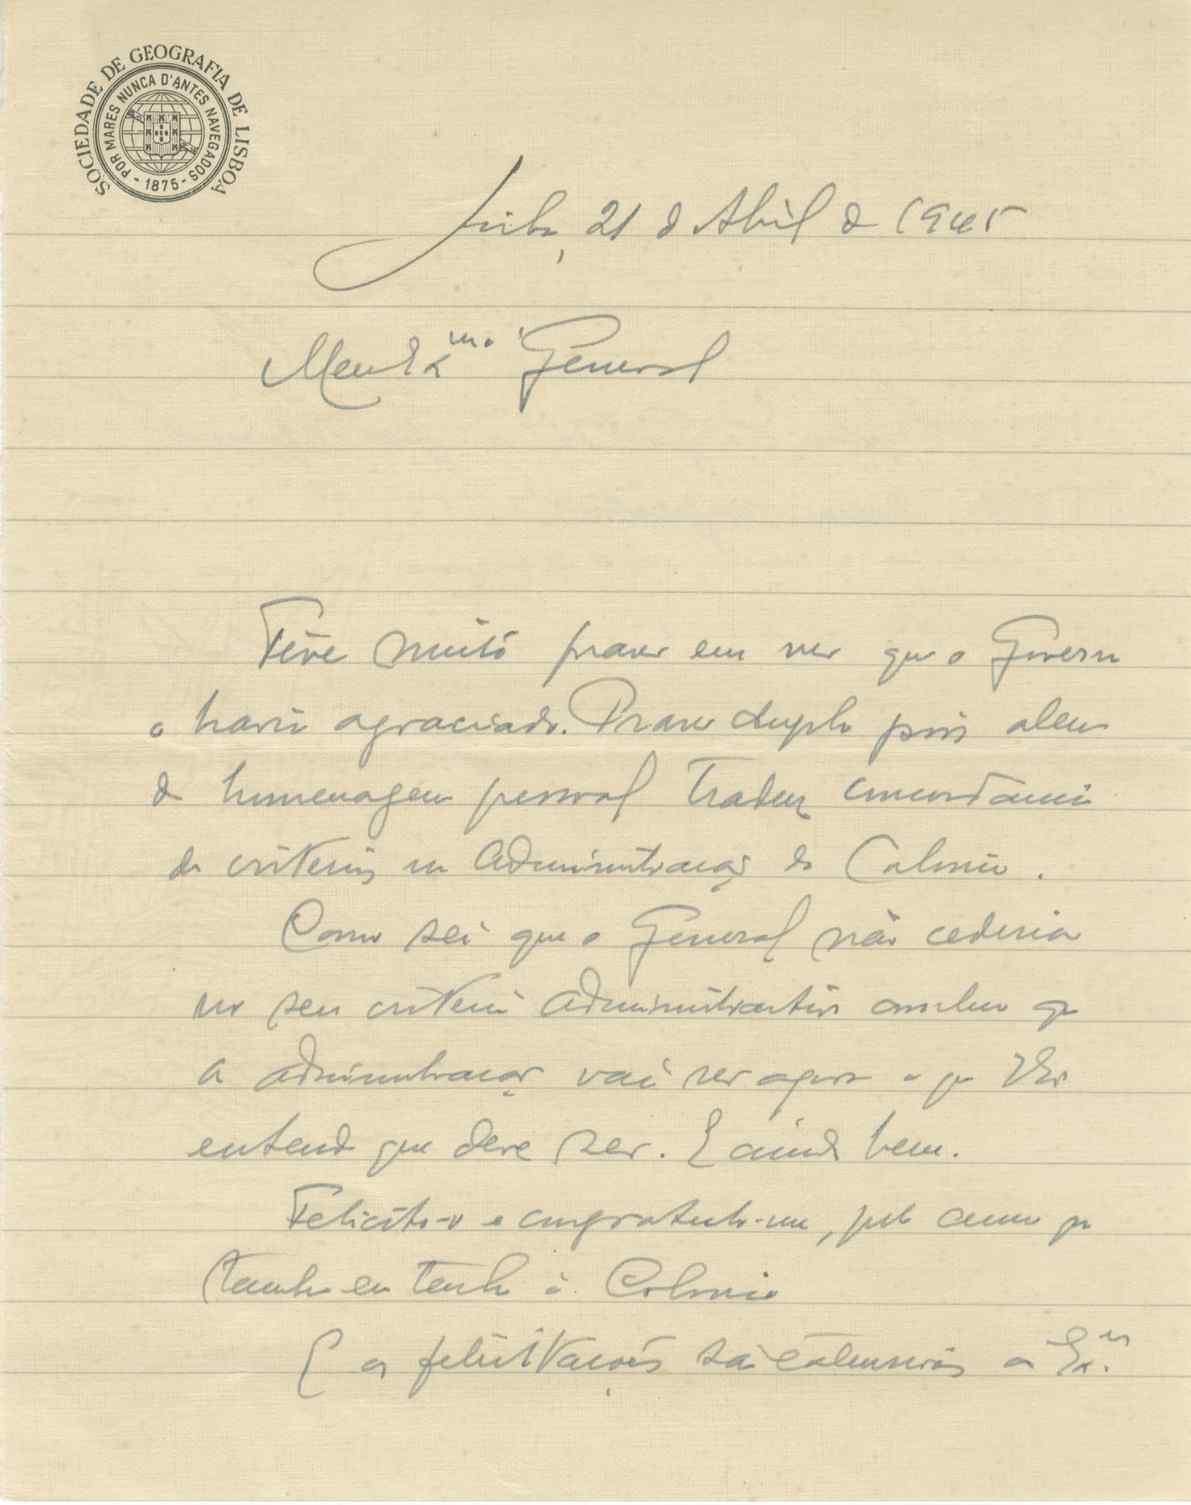 SOCIEDADE DE GEOGRAFIA DE LISBOA
POR MARES NUNCA D'ANTES NAVEGADOS
- 1875 -
21 de Abril de 1945
Meu Exmo General
Tive muito prazer em ver que o Governo
o havia agraciado. Prazer duplo pois alem
da homenagem pessoal traduz concordancia
de criterios na Administração da Colonia.
Como sei que o General não cederia
no seu criterio administrativo concluo que
a administração vai ser agora o que
entende que deve ser. E ainda bem.
Felicito-o e congratulo-me, pelo amor que
tambem eu tenho à Colonia
E as felicitações são extensivas a Exa.